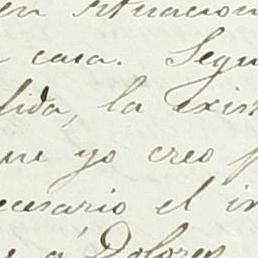 en situacion
casa. Segu
fida, la exis
que yo creo
ecesario el in
á Dolores